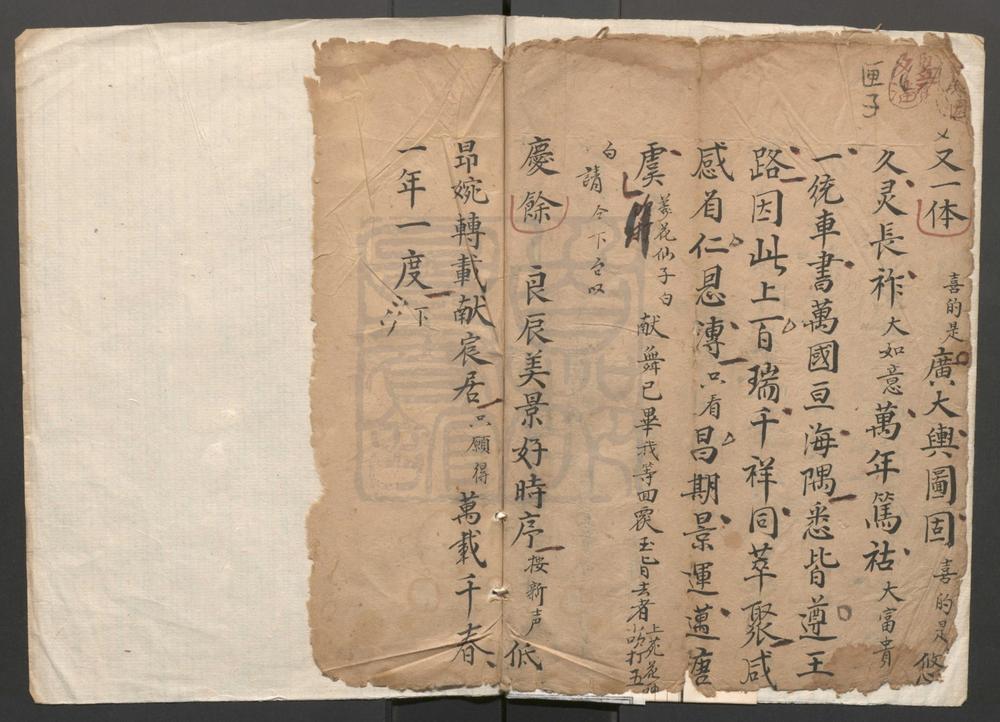 匣子
又一体 喜的是廣大輿圖固喜的是悠
久灵長祚大如意萬年篤祜大富貴
一统車書萬國亘海隅悉皆遵王
路因此上百瑞千祥同萃聚咸
感着仁恩溥只看昌期景運邁唐
虞 萬花仙子白 献舞已畢我等回覆玉旨去者
白請仝下
慶餘 良辰美景好時序按新声低
昂婉轉載献宸居只願得萬载千春
一年一度下